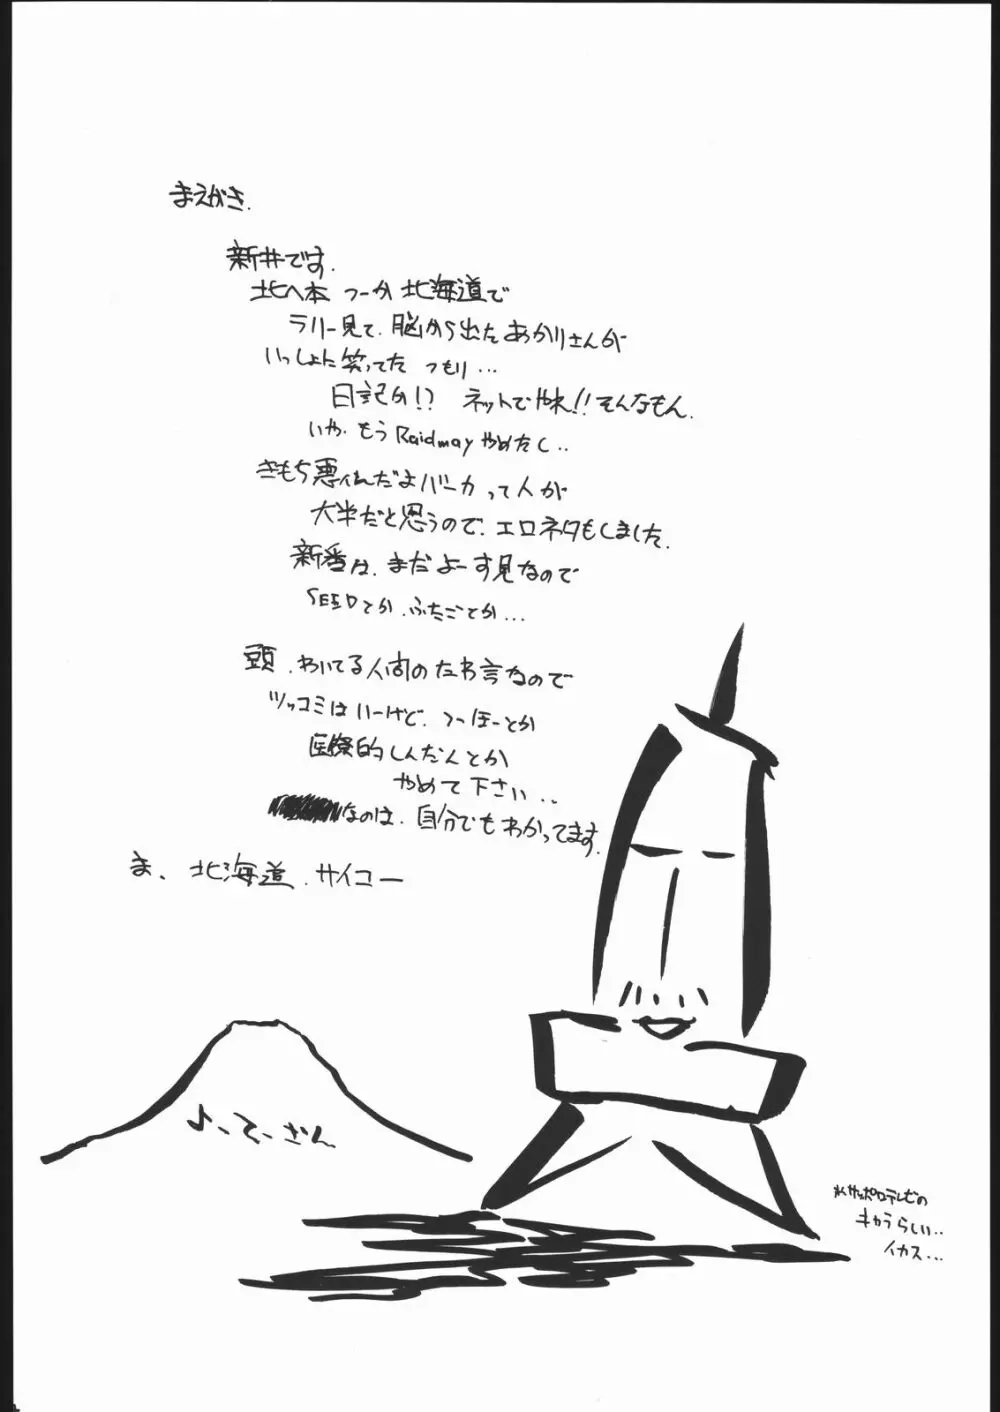 まえがき.
新井です.
北へ本 つーか 北海道で
ラリー見て、脳から出たあかりさんが
いっしょに笑ってた つもり...
日記か!? ネットでやれ!! そんなもん.
いや、もう Raidmay やめたし..
きもち悪いんだよバーカって人が
大半だと思うので、エロネタもしました.
新番は、まだよーす見なので
SEEDとか、ふたごとか...
頭、わいてる人間のたわ言なので
ツッコミはいーけど、つーほーとか
医療的しんだんとか
やめて下さい..
なのは、自分でもわかってます.
ま、北海道、サイコー
よーてーさん
※サッポロテレビの
キャラらしい..
イカス...